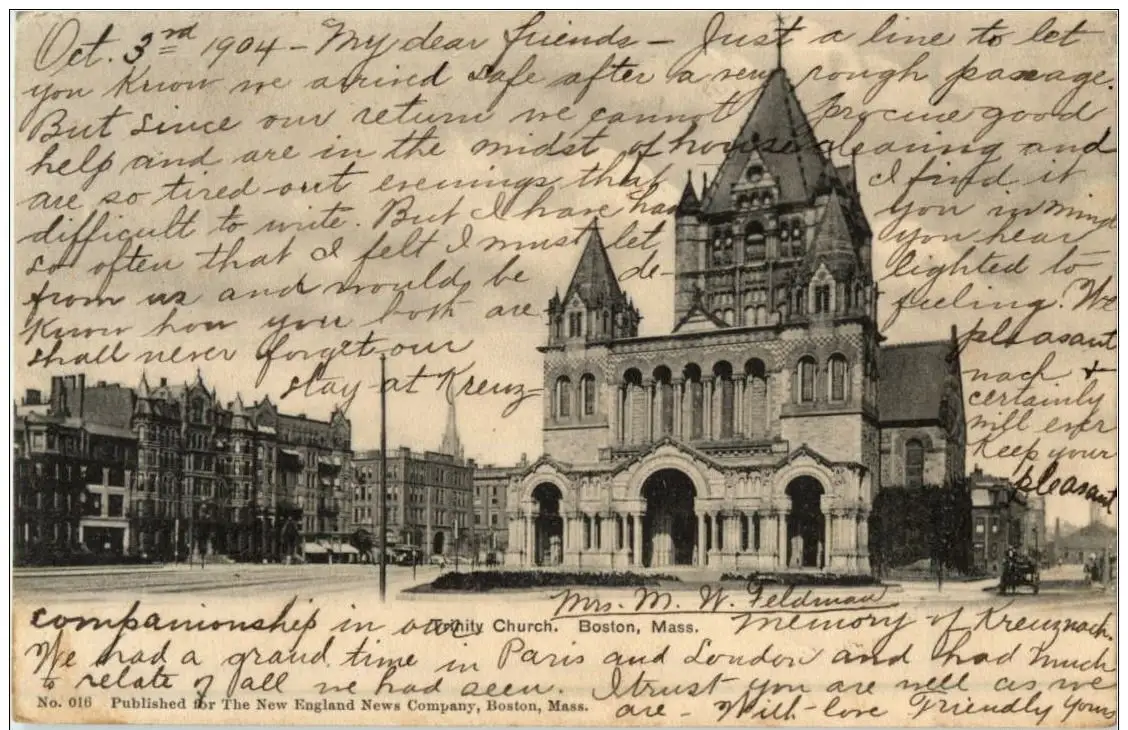 Oct. 3rd 1904 - My dear friends - Just a line to let
you know we arrived safe after a very rough passage.
But since our return we cannot procure good
help and are in the midst of house cleaning and
are so tired out evenings that I find it
difficult to write. But I have had you in mind
so often that I felt I must let you hear
from us and would be de- lighted to
know how you both are feeling. We
shall never forget our pleasant
stay at Kreuz- nach &
certainly
will ever
Keep your
pleasant
Mrs. M. W. Feldman
companionship in our memory of Kreuznach.
Trinity Church. Boston, Mass.
We had a grand time in Paris and London and had much
to relate of all we had seen. I trust you are well as we
are - With love Friendly Yours
No. 016 Published for The New England News Company, Boston, Mass.